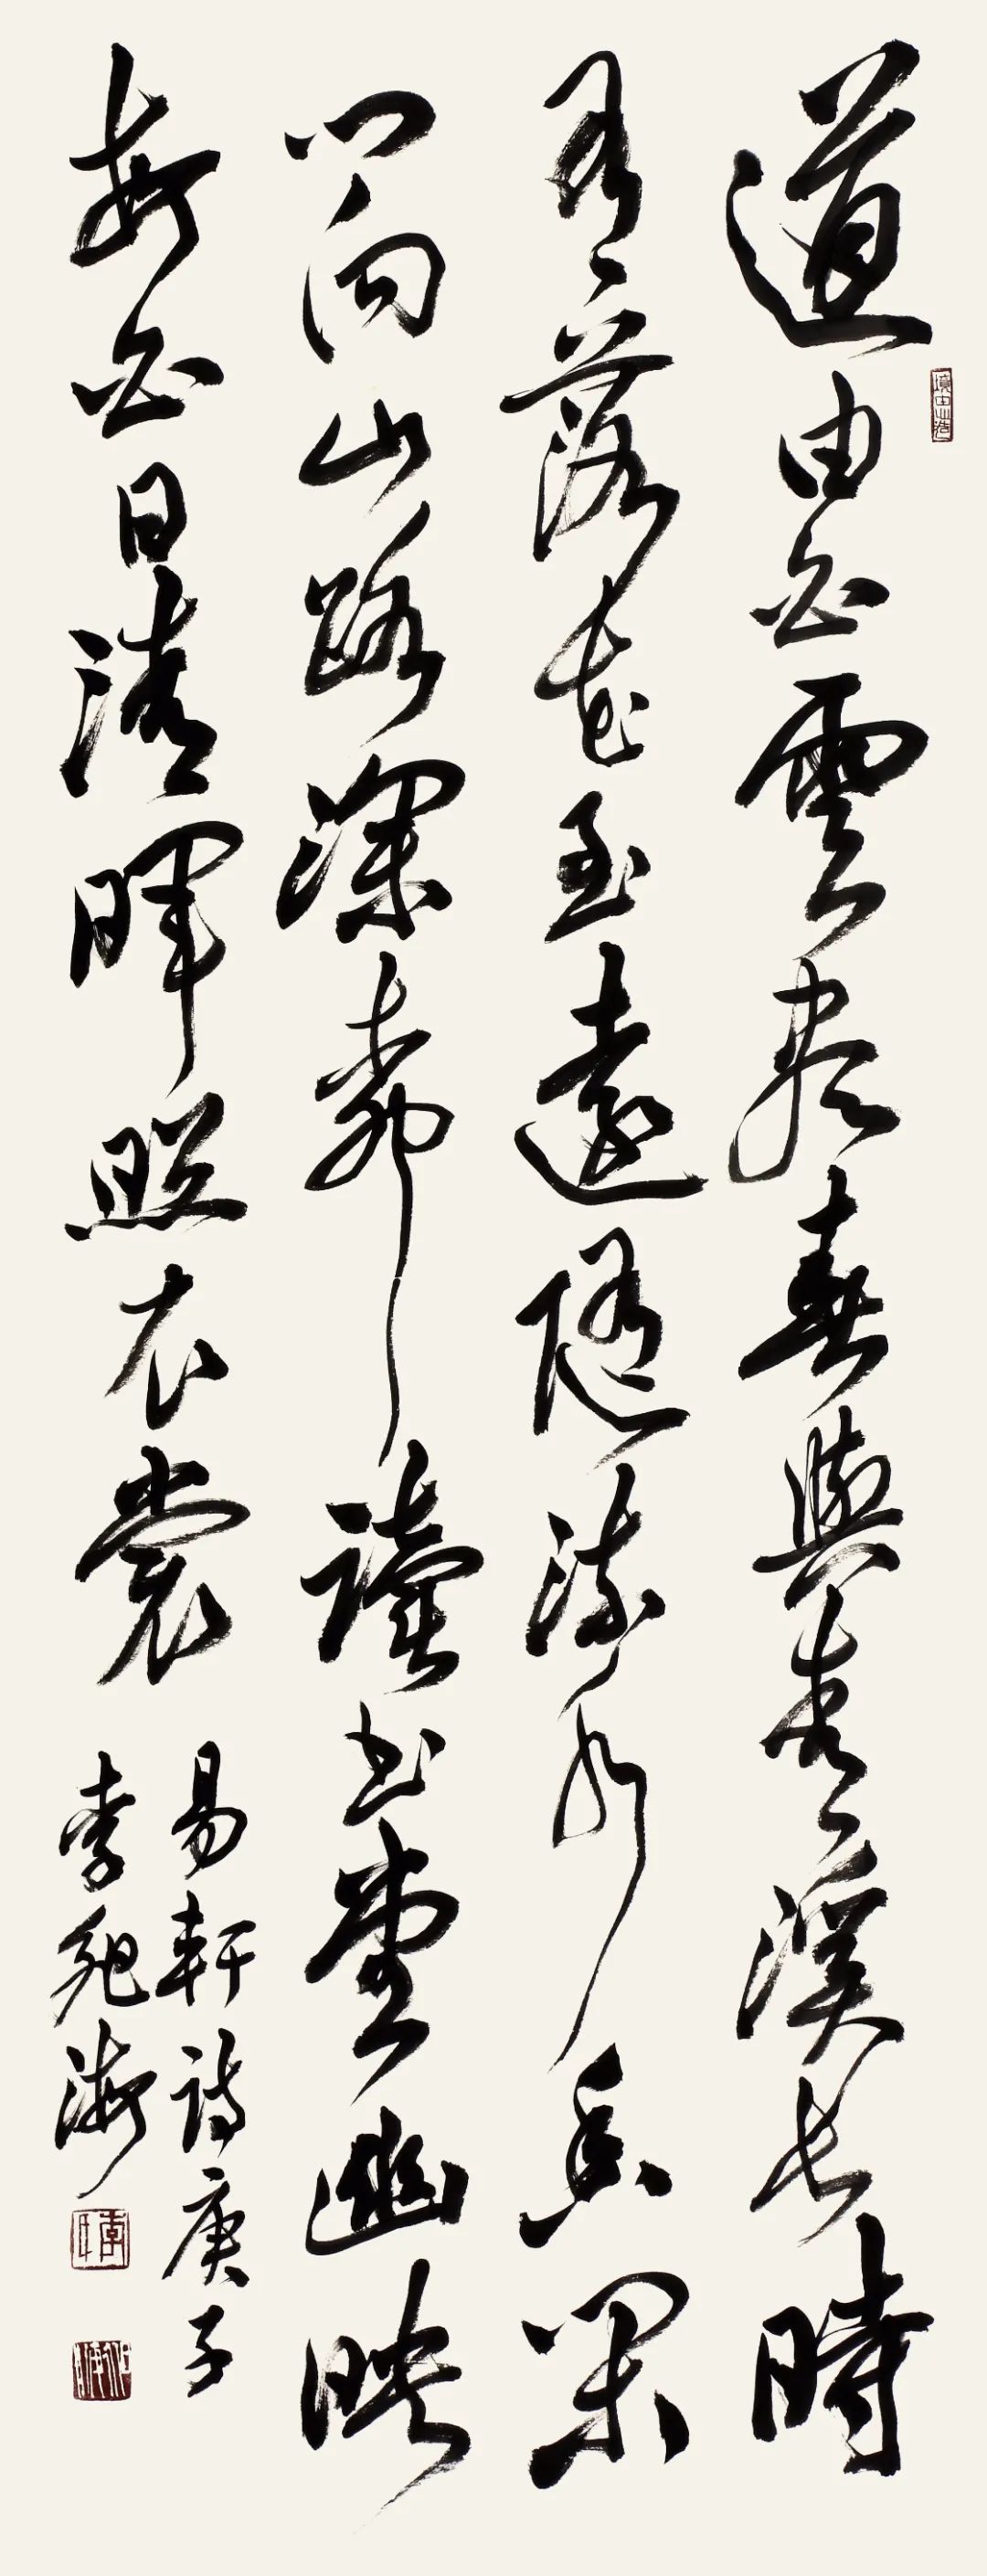 道由白雲尽春與青溪長時
境由心造
有落花至遠隨流水香閑
門向山路深柳讀書堂幽映
每白日清暉照衣裳
易軒詩庚子
李海